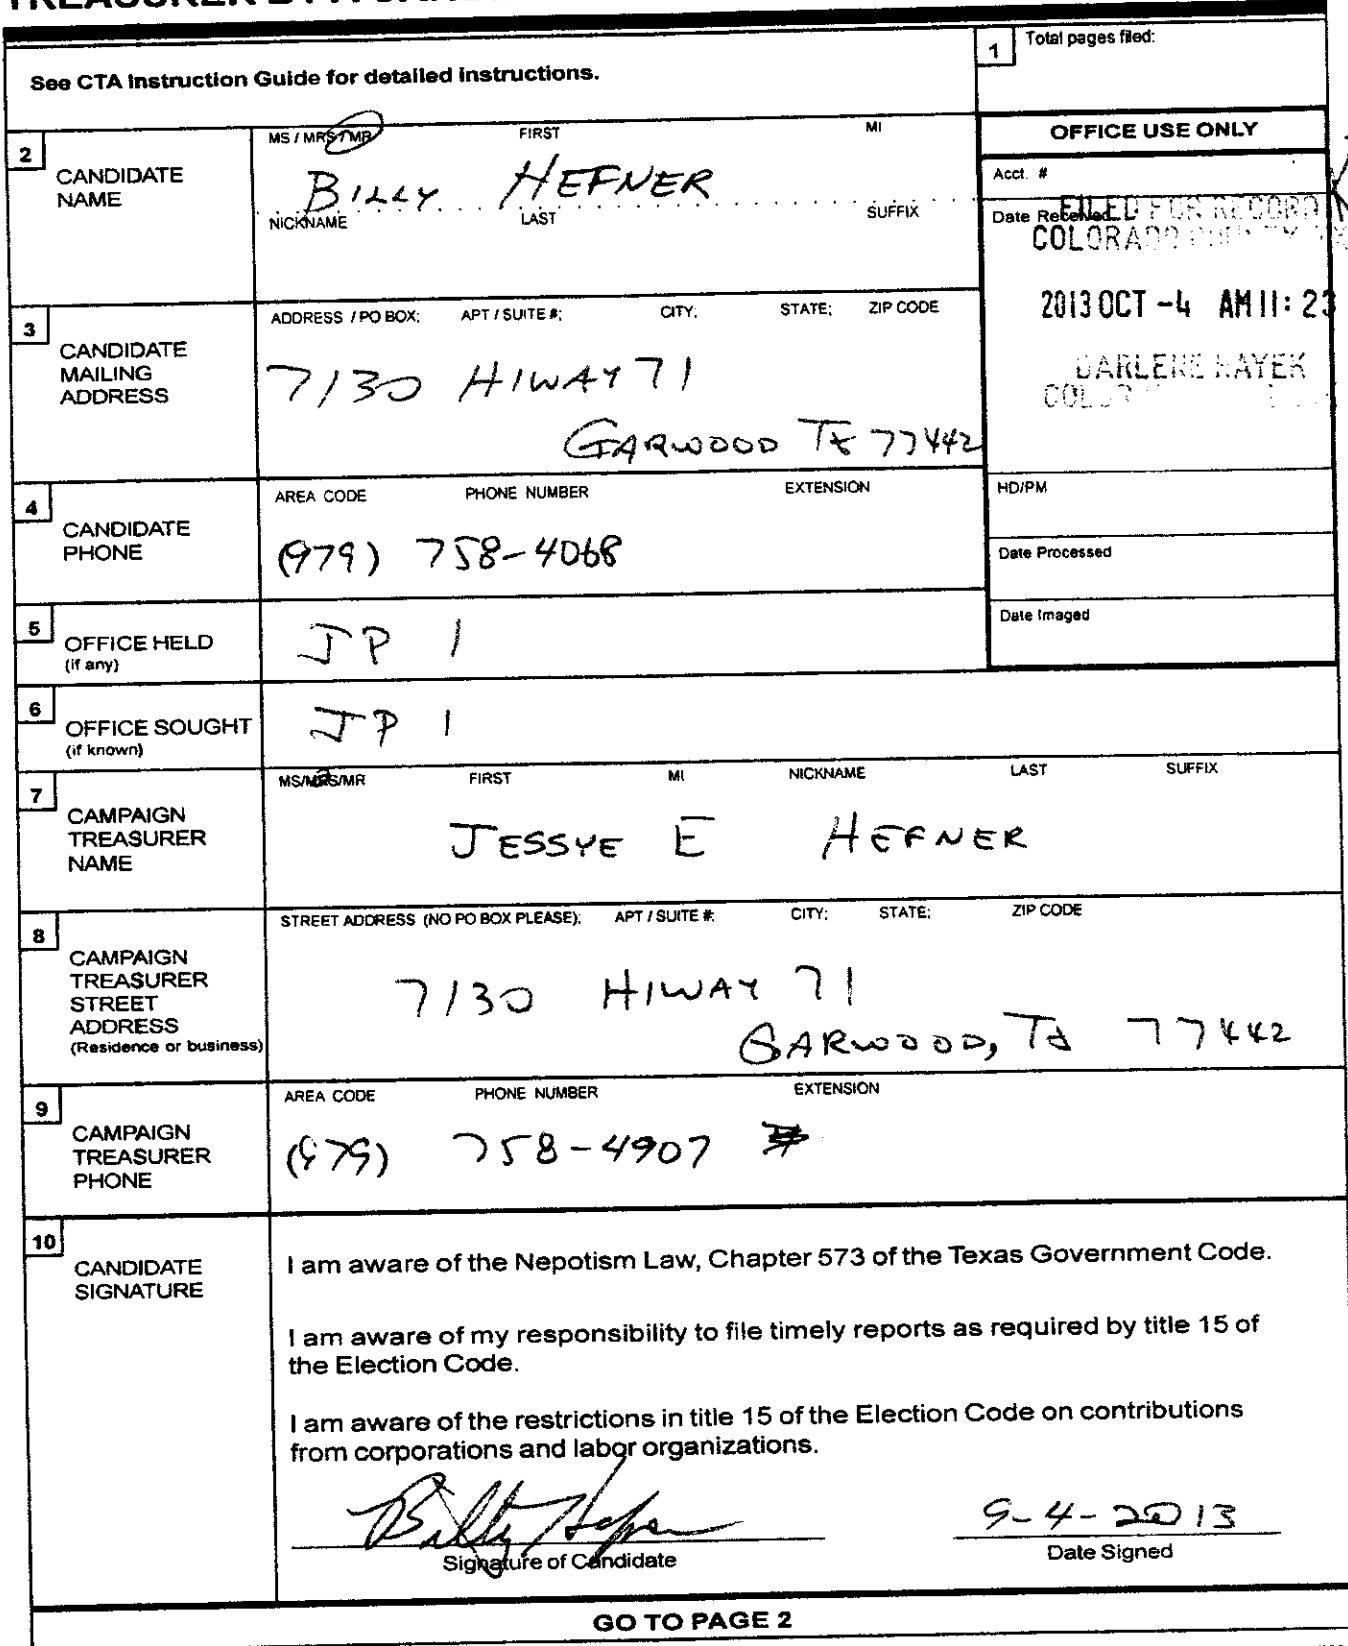 See CTA Instruction Guide for detailed instructions.
1 Total pages filed:
2 CANDIDATE NAME
MS / MRS / MR FIRST MI
BILLY HEFNER
NICKNAME LAST SUFFIX
OFFICE USE ONLY
Acct. #
Date Received
FILED FOR RECORD
COLORADO COUNTY
2013 OCT -4 AM 11: 23
DARLENE HAYEK
3 CANDIDATE MAILING ADDRESS
ADDRESS / PO BOX; APT / SUITE #; CITY; STATE; ZIP CODE
7130 HIWAY 71
GARWOOD TX 77442
4 CANDIDATE PHONE
AREA CODE PHONE NUMBER EXTENSION
(979) 758-4068
HD/PM
Date Processed
Date Imaged
5 OFFICE HELD
(if any)
JP 1
6 OFFICE SOUGHT
(if known)
JP 1
7 CAMPAIGN TREASURER NAME
MS/MRS/MR FIRST MI NICKNAME LAST SUFFIX
JESSYE E HEFNER
8 CAMPAIGN TREASURER STREET ADDRESS
(Residence or business)
STREET ADDRESS (NO PO BOX PLEASE); APT / SUITE #; CITY; STATE; ZIP CODE
7130 HIWAY 71
GARWOOD, TX 77442
9 CAMPAIGN TREASURER PHONE
AREA CODE PHONE NUMBER EXTENSION
(979) 758-4907
10 CANDIDATE SIGNATURE
I am aware of the Nepotism Law, Chapter 573 of the Texas Government Code.
I am aware of my responsibility to file timely reports as required by title 15 of
the Election Code.
I am aware of the restrictions in title 15 of the Election Code on contributions
from corporations and labor organizations.
Billy Hefner 9-4-2013
Signature of Candidate Date Signed
GO TO PAGE 2